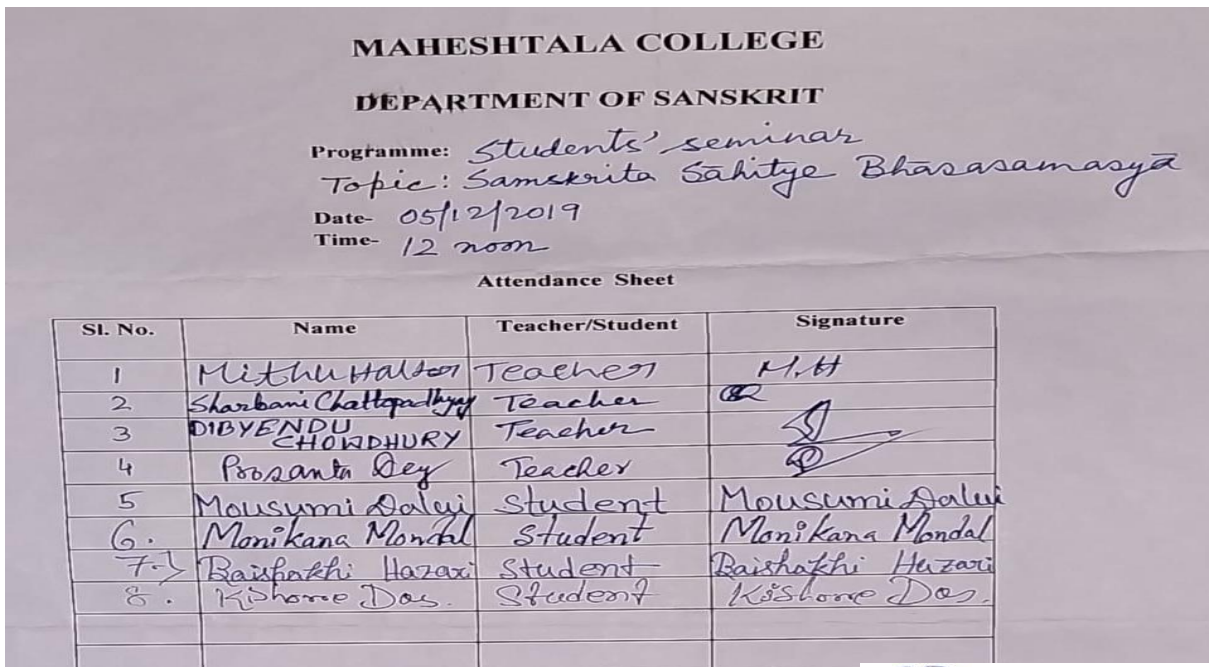 MAHESHTALA COLLEGE
DEPARTMENT OF SANSKRIT
Programme: Students' seminar
Topic: Samskrita Sāhitye Bhāsasamasyā
Date- 05/12/2019
Time- 12 noon
Attendance Sheet
Sl. No. Name Teacher/Student Signature
1 Mithu Halder Teacher M.H
2 Sharbani Chattopadhyay Teacher
3 DIBYENDU CHOWDHURY Teacher
4 Prosanta Dey Teacher
5 Mousumi Dalui Student Mousumi Dalui
6. Monikana Mondal Student Monikana Mondal
7.) Baishakhi Hazari Student Baishakhi Hazari
8. Kishore Das. Student Kishore Das.